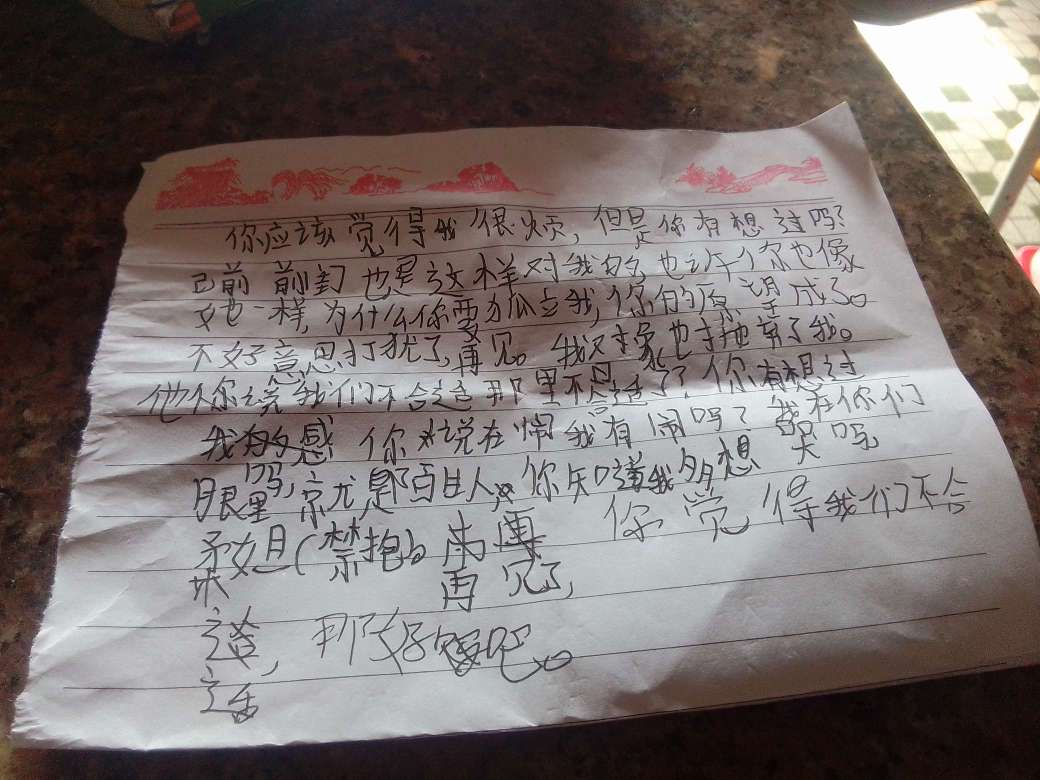 你应该觉得我很烦，但是你有想过吗？
已前 前封 也是这样对我的 也许你也像
她一样，为什么你要孤立我，你的原望成了。
不好意思打扰了，再见。我对象也抛弃了我。
他你说我们不合适 那里不合适了？你有想过
我的感 你说在闹我有闹吗？我在你们
吗，
眼里 就是百日人，你知道我多想 哭吗，
(禁抱)。 你 觉 得我们不合
再见了，
适，那好吧。